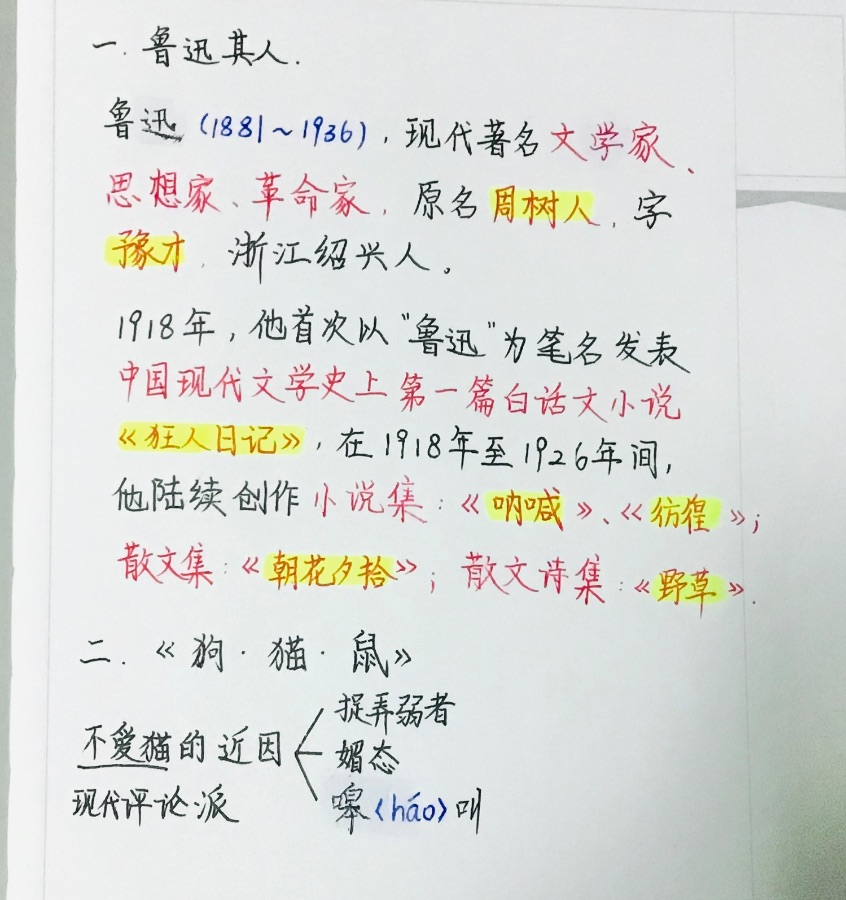 一.鲁迅其人.
鲁迅(1881~1936),现代著名文学家、
思想家、革命家,原名周树人,字
豫才,浙江绍兴人。
1918年,他首次以"鲁迅"为笔名发表
中国现代文学史上第一篇白话文小说
《狂人日记》,在1918年至1926年间,
他陆续创作小说集:《呐喊》、《彷徨》;
散文集:《朝花夕拾》;散文诗集:《野草》.
二.《狗·猫·鼠》
捉弄弱者
不爱猫的近因 媚态
现代评论派 嗥<háo>叫